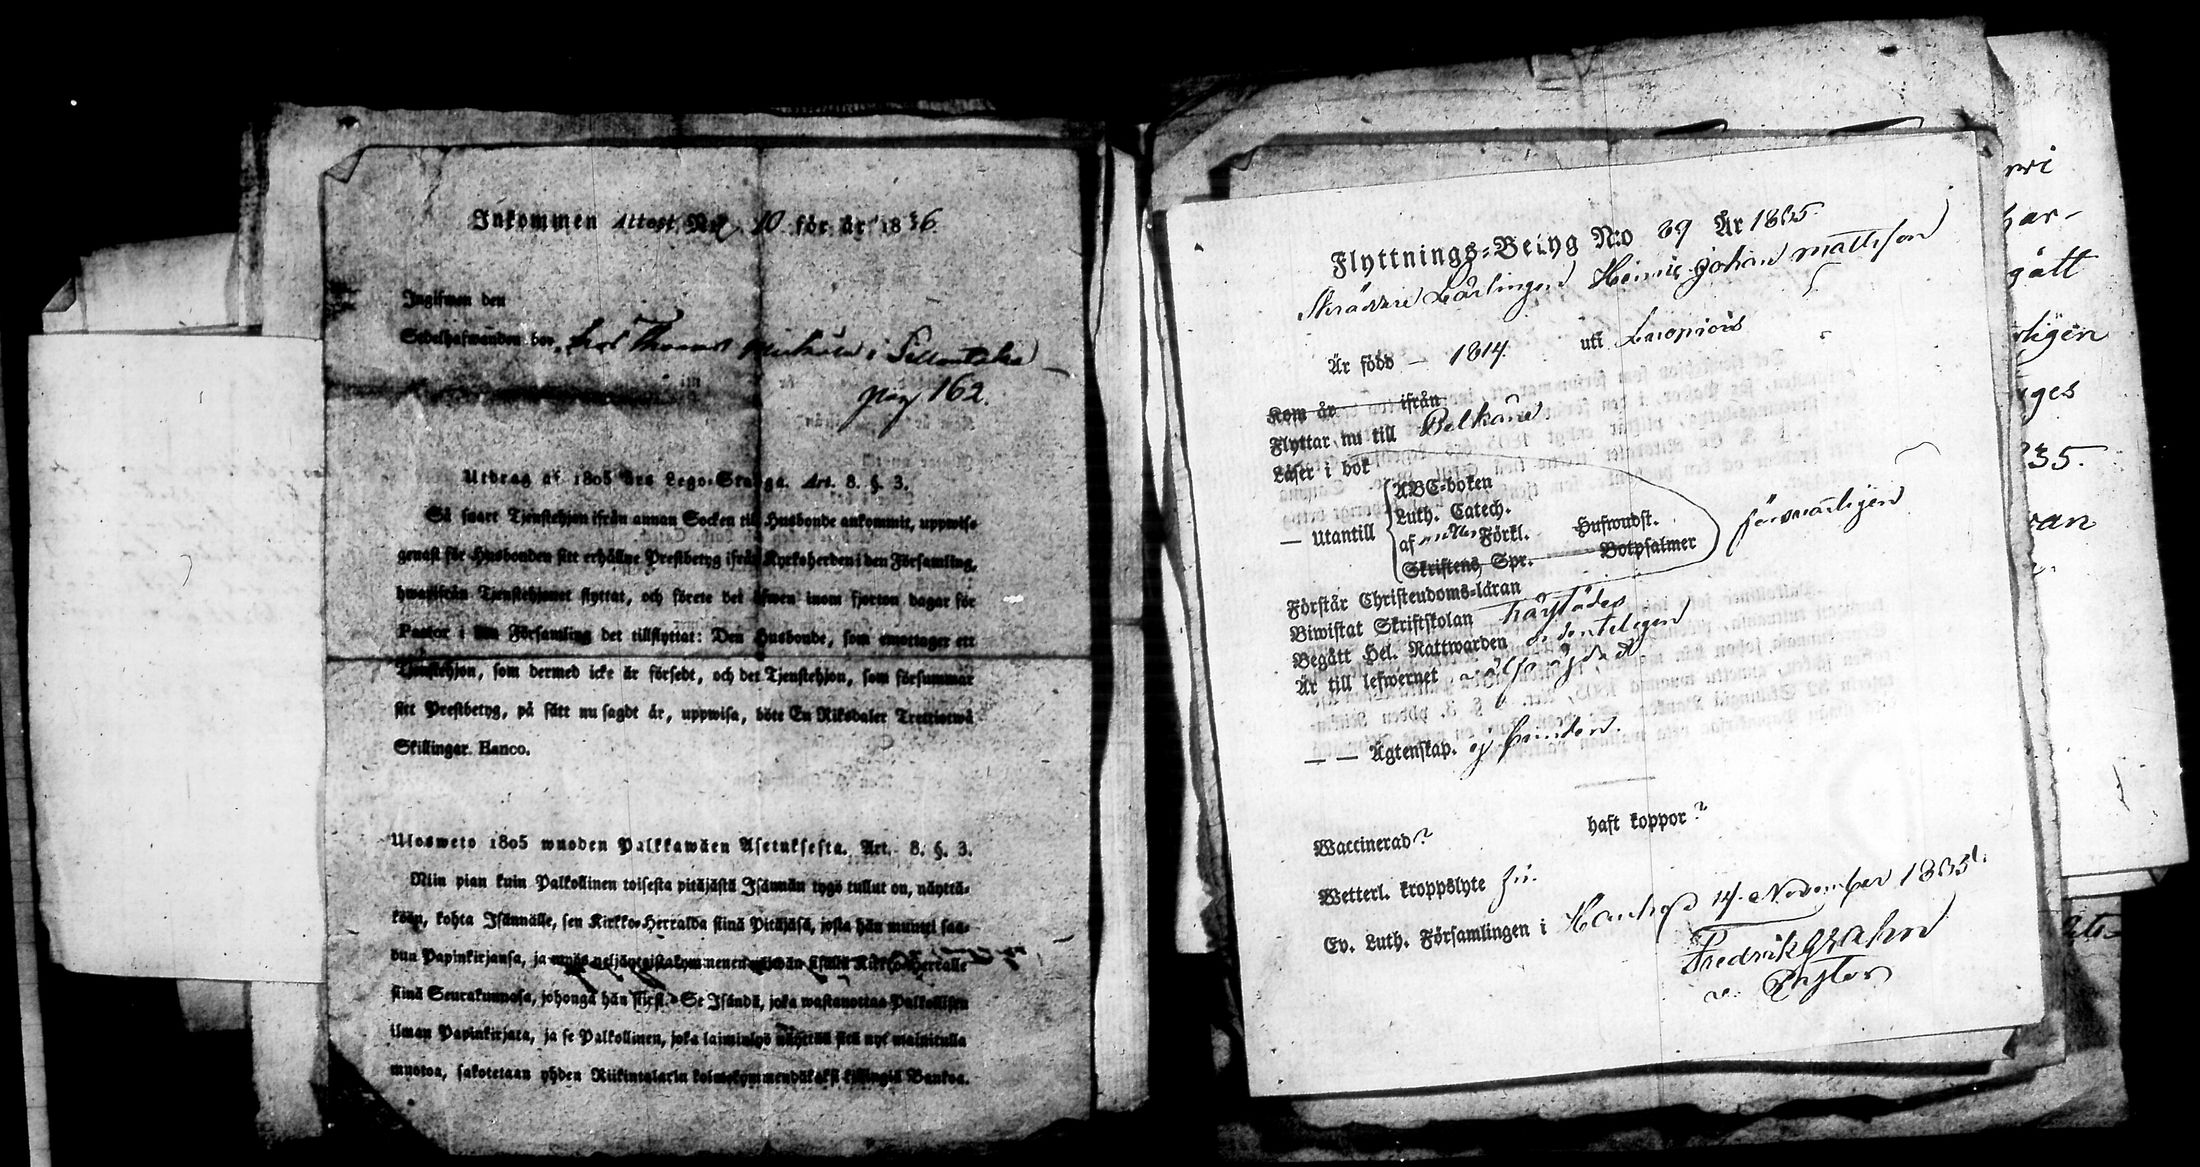 Inkommen Attest No 10 för år 1836
Ingifwen den
Sedelhafwanden bor
i
pag 162.
Utdrag af 1805 års Lego-Stadga. Art. 8. §. 3.
Så snart Tjenstehjon ifrån annan Socken till Husbonde ankommit, uppwise
genast för Husbonden sitt erhållne Prestbetyg ifrån Kyrkoherden i den Församling,
hwarifrån Tjenstehjonet flyttat, och förete det äfwen inom fjorton dagar för
Pastor i den Församling det tillflyttat: Den Husbonde, som emottager ett
Tjenstehjon, som dermed icke är försedt, och det Tjenstehjon, som försummar
sitt Prestbetyg, på sätt nu sagdt är, uppwisa, böte En Riksdaler Trettiotwå
Skillingar. Banco.
Ulosweto 1805 wuoden Palkkawäen Asetuksesta. Art. 8. §. 3.
Niin pian kuin Palkollinen toisesta pitäjästä Isännän tygö tullut on, näyttä-
köön, kohta Isännälle, sen Kirkko-Herralda siinä Pitäjäsä, josta hän muutti saa-
dun Papinkirjansa, ja myös neljäntoistakymmenen päiwän sisällä Kirkko-Herralle
siinä Seurakunnasa, johonga hän siirsi. Se Isändä, joka wastanottaa Palkollisen
ilman Papinkirjata, ja se Palkollinen, joka laiminlyö näyttää sitä nyt mainitulla
muotoa, sakotetaan yhden Riikintalarin kolmekymmendäkaksi killingiä Bankoa.
Flyttnings-Betyg N:o 39 År 1835.
Skräddare Lärlingen Henric Johan Mattsson
Är född — 1814. uti
Kom år ifrån
Flyttar nu till Pelkäne
Läser i bok
ABC-boken
Luth. Catech.
— Utantill
af Förkl. Hufwudst.
Skriftens Spr. Botpsalmer
försvarligen
Förstår Christendoms-läran
Biwistat Skriftskolan
Begått Hel. Nattwarden ordenteligen
Är till lefwernet wälfrägdad
— — Ägtenskap. ej bunden.
Waccinerad? haft koppor?
Wetterl. kroppslyte
Ev. Luth. Församlingen i Hauho d 14 November 1835.
Fredrik Grahn
v. Pastor